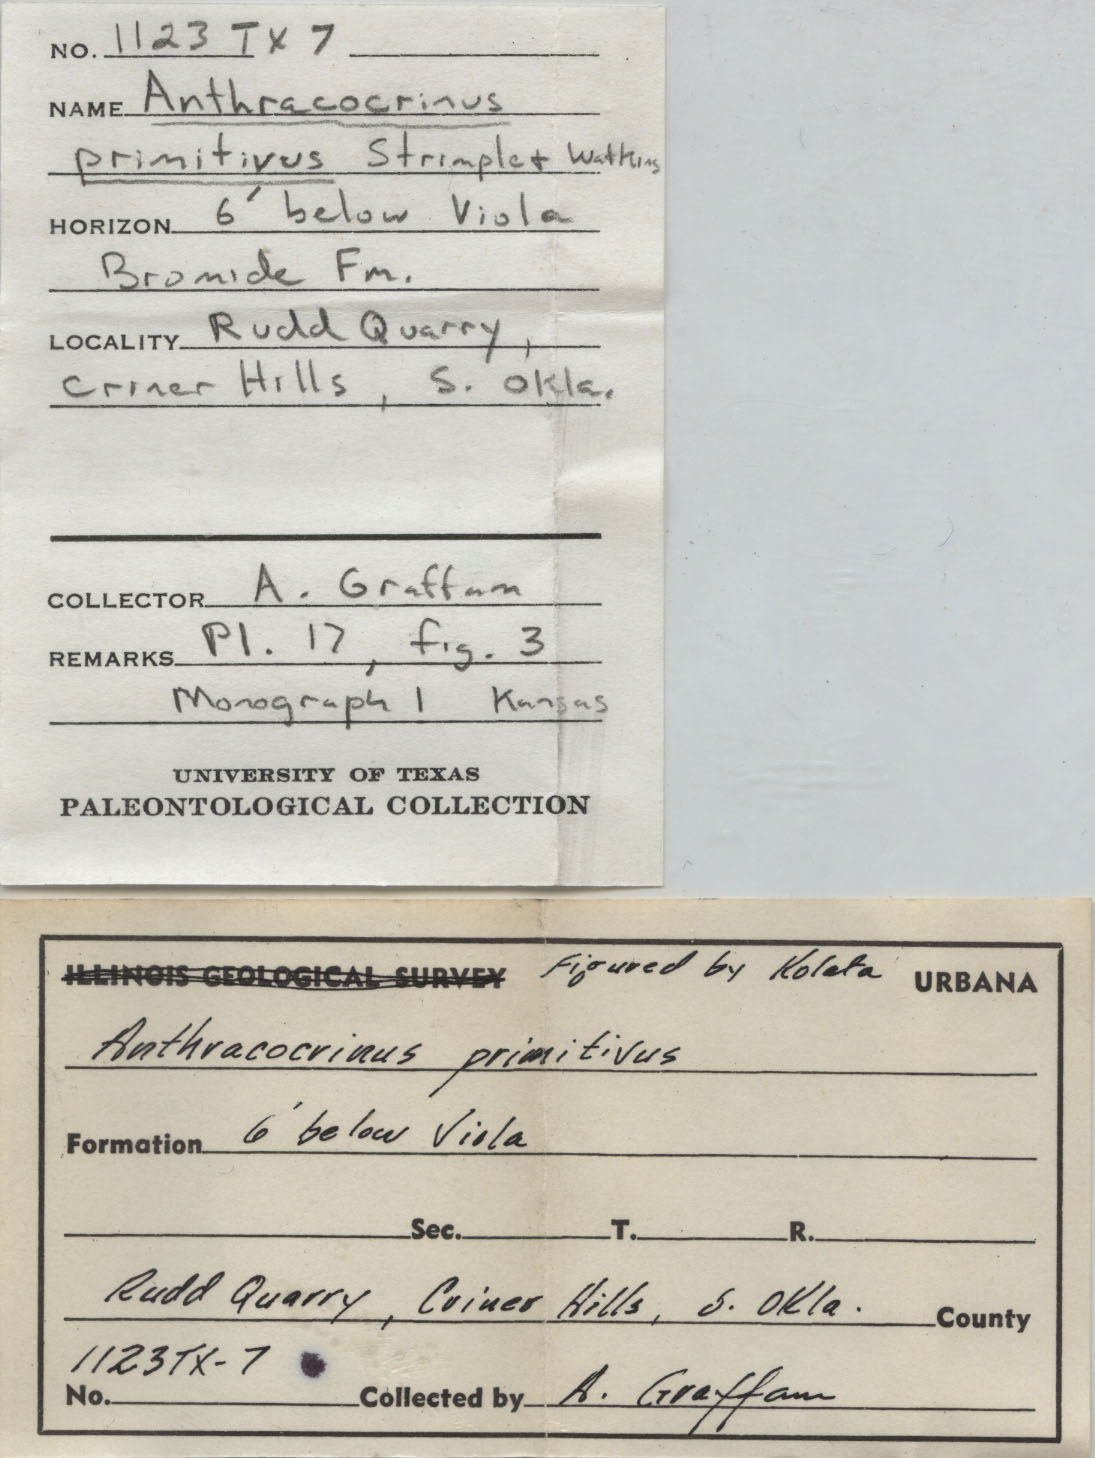 NO. 1123 TX 7
NAME Anthracocrinus
primitivus Strimple + Watkins
HORIZON 6' below Viola
Bromide Fm.
LOCALITY Rudd Quarry,
Criner Hills, S. Okla.
COLLECTOR A. Graffam
REMARKS Pl. 17, fig. 3
Monograph 1 Kansas
UNIVERSITY OF TEXAS
PALEONTOLOGICAL COLLECTION
ILLINOIS GEOLOGICAL SURVEY Figured by Kolata URBANA
Anthracocrinus primitivus
Formation 6' below Viola
Sec. T. R.
Rudd Quarry, Criner Hills, S. Okla. County
1123TX-7
No. Collected by A. Graffam